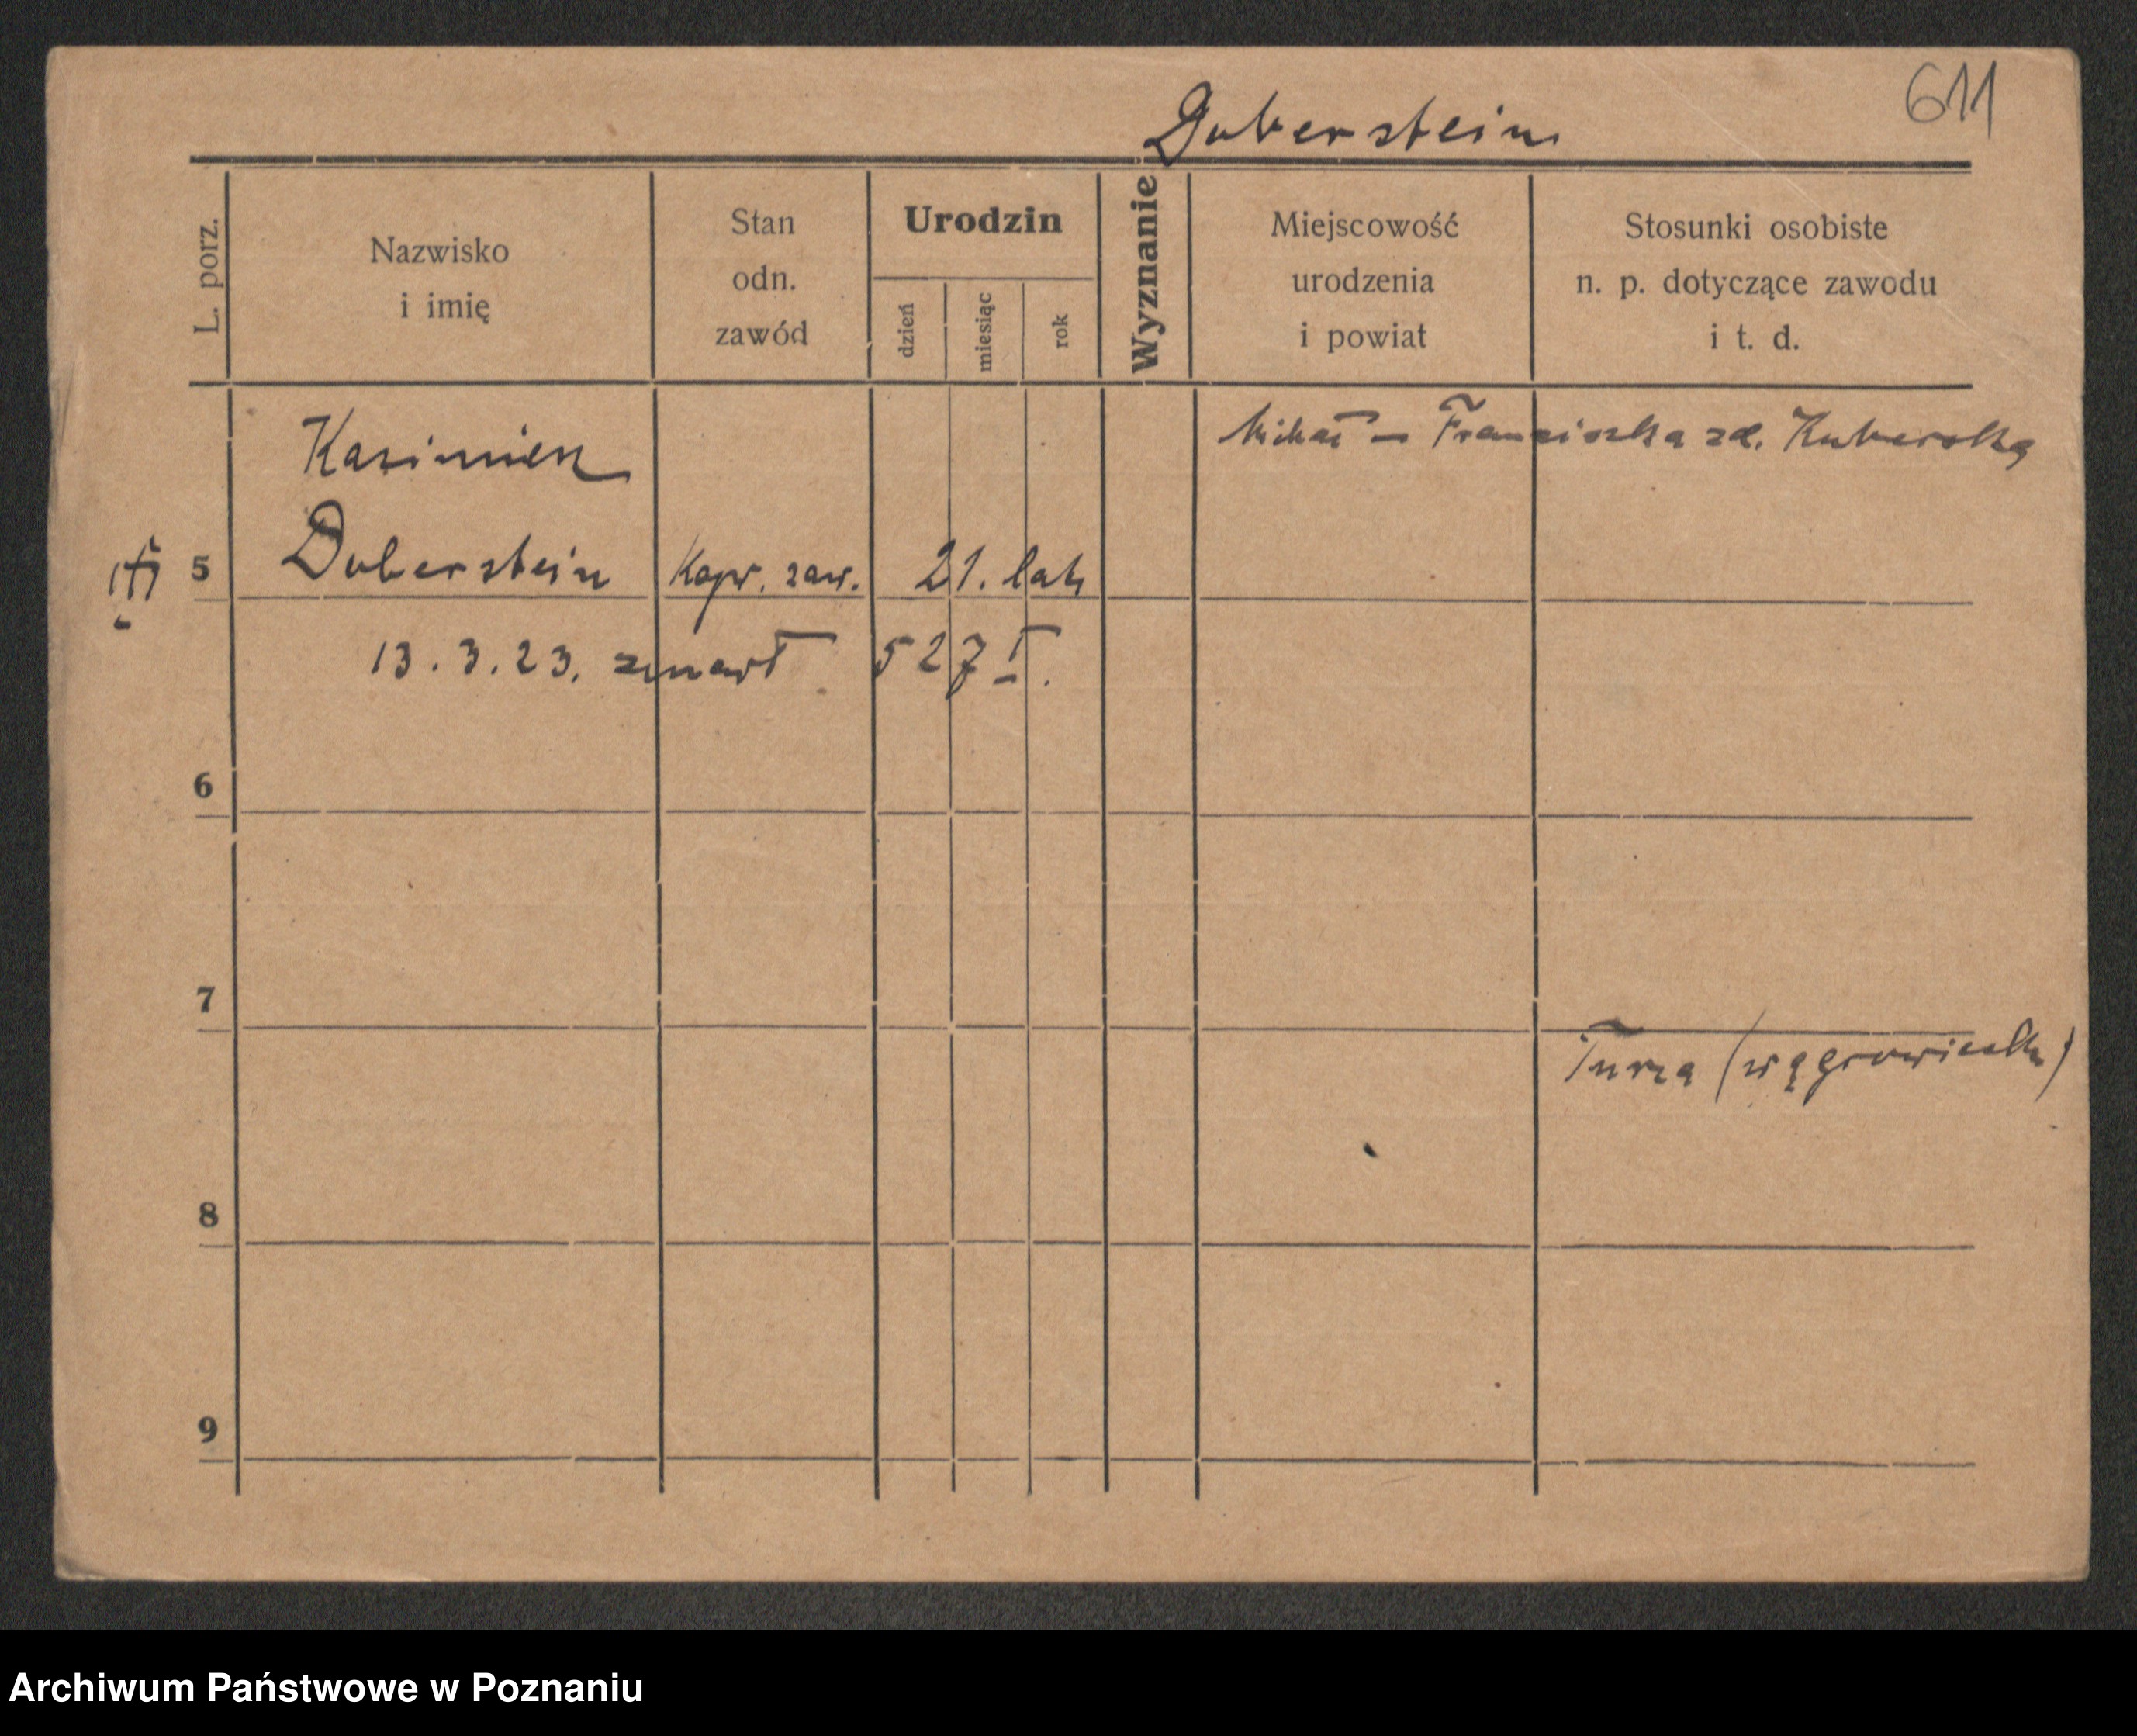 611
Duberstein
L. porz.
Nazwisko
i imię
Stan
odn.
zawód
Urodzin
dzień
miesiąc
rok
Wyznanie
Miejscowość
urodzenia
i powiat
Stosunki osobiste
n. p. dotyczące zawodu
i t. d.
Michał – Franciszka zd. Kuberska
Kazimierz
5 Duberstein Kapr. zaw. 21. lat
13.3.23. zmarł 527 I.
6
7
Turza (wągrowieck)
8
9
Archiwum Państwowe w Poznaniu